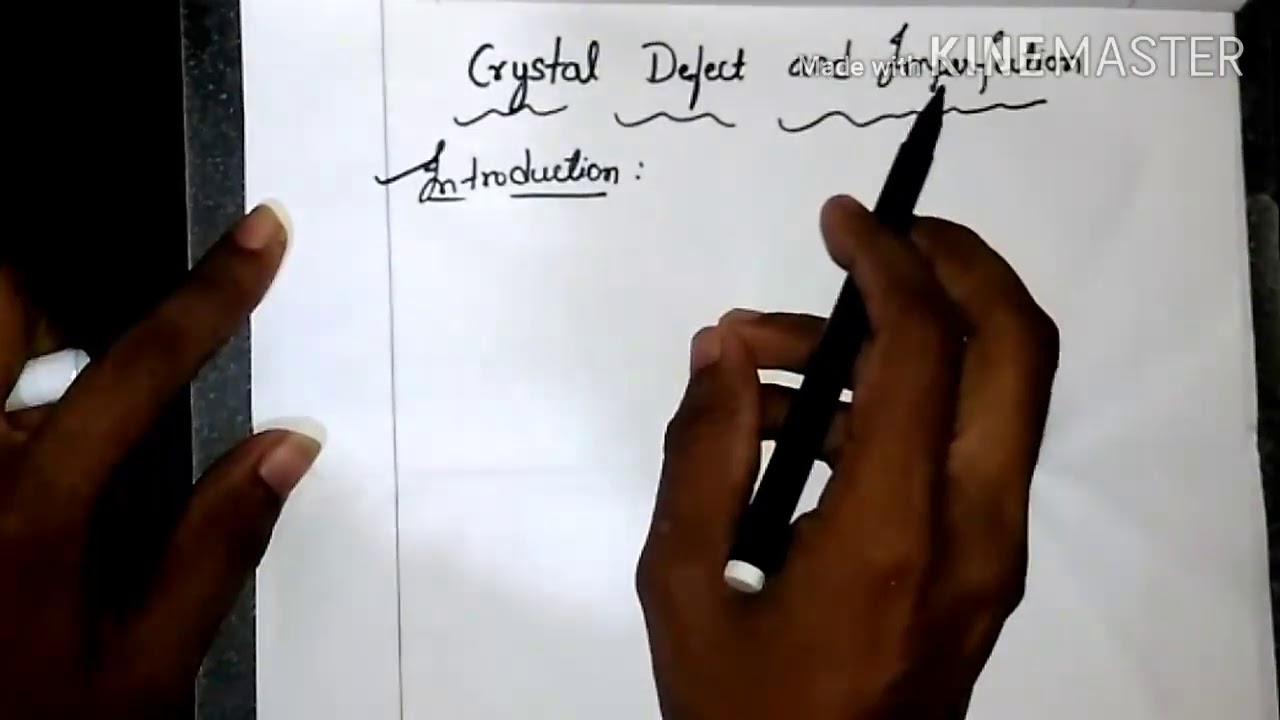 Crystal Defect and Imperfection
Made with KINEMASTER
Introduction :